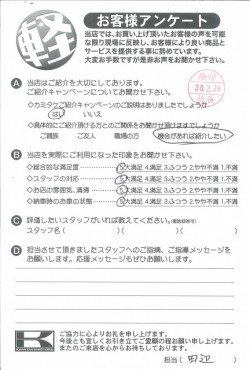 軽
お客様アンケート
当店では、お買い上げ頂いたお客様の声を可能
な限り現場に反映し、お客様により良い商品と
サービスを提供する事に努めています。
大変お手数ですが是非お声をお聞かせ下さい。
A 当店はご紹介を大切にしております。
ご紹介キャンペーンについてお聞かせ下さい。
◇カミタケご紹介キャンペーンのご説明はありましたでしょうか
はい いいえ
◇具体的にご紹介頂ける方とのご関係をお聞かせ頂けますでしょうか
ご親族 ご友人 職場の方 機会があれば紹介したい
B 当店を実際にご利用になった印象をお聞かせ下さい。
◇総合的な満足度 5.大満足 4.満足 3.ふつう 2.やや不満 1.不満
◇スタッフの対応 5.大満足 4.満足 3.ふつう 2.やや不満 1.不満
◇お店の雰囲気、清掃 5.大満足 4.満足 3.ふつう 2.やや不満 1.不満
◇納車時のお車の状態 5.大満足 4.満足 3.ふつう 2.やや不満 1.不満
C 評価したいスタッフがいれば教えてください。(複数回答可)
スタッフ名( )( )( )
D 担当させて頂きましたスタッフへのご指摘、ご指導メッセージを
お願いします。応援メッセージもぜひお願いします。
K
ご協力に心よりお礼を申し上げます。
今後とも宜しくお引き立てご愛顧の程お願い申し上げます。
またのご来店を心からお待ちしております。
担当( 田辺 )